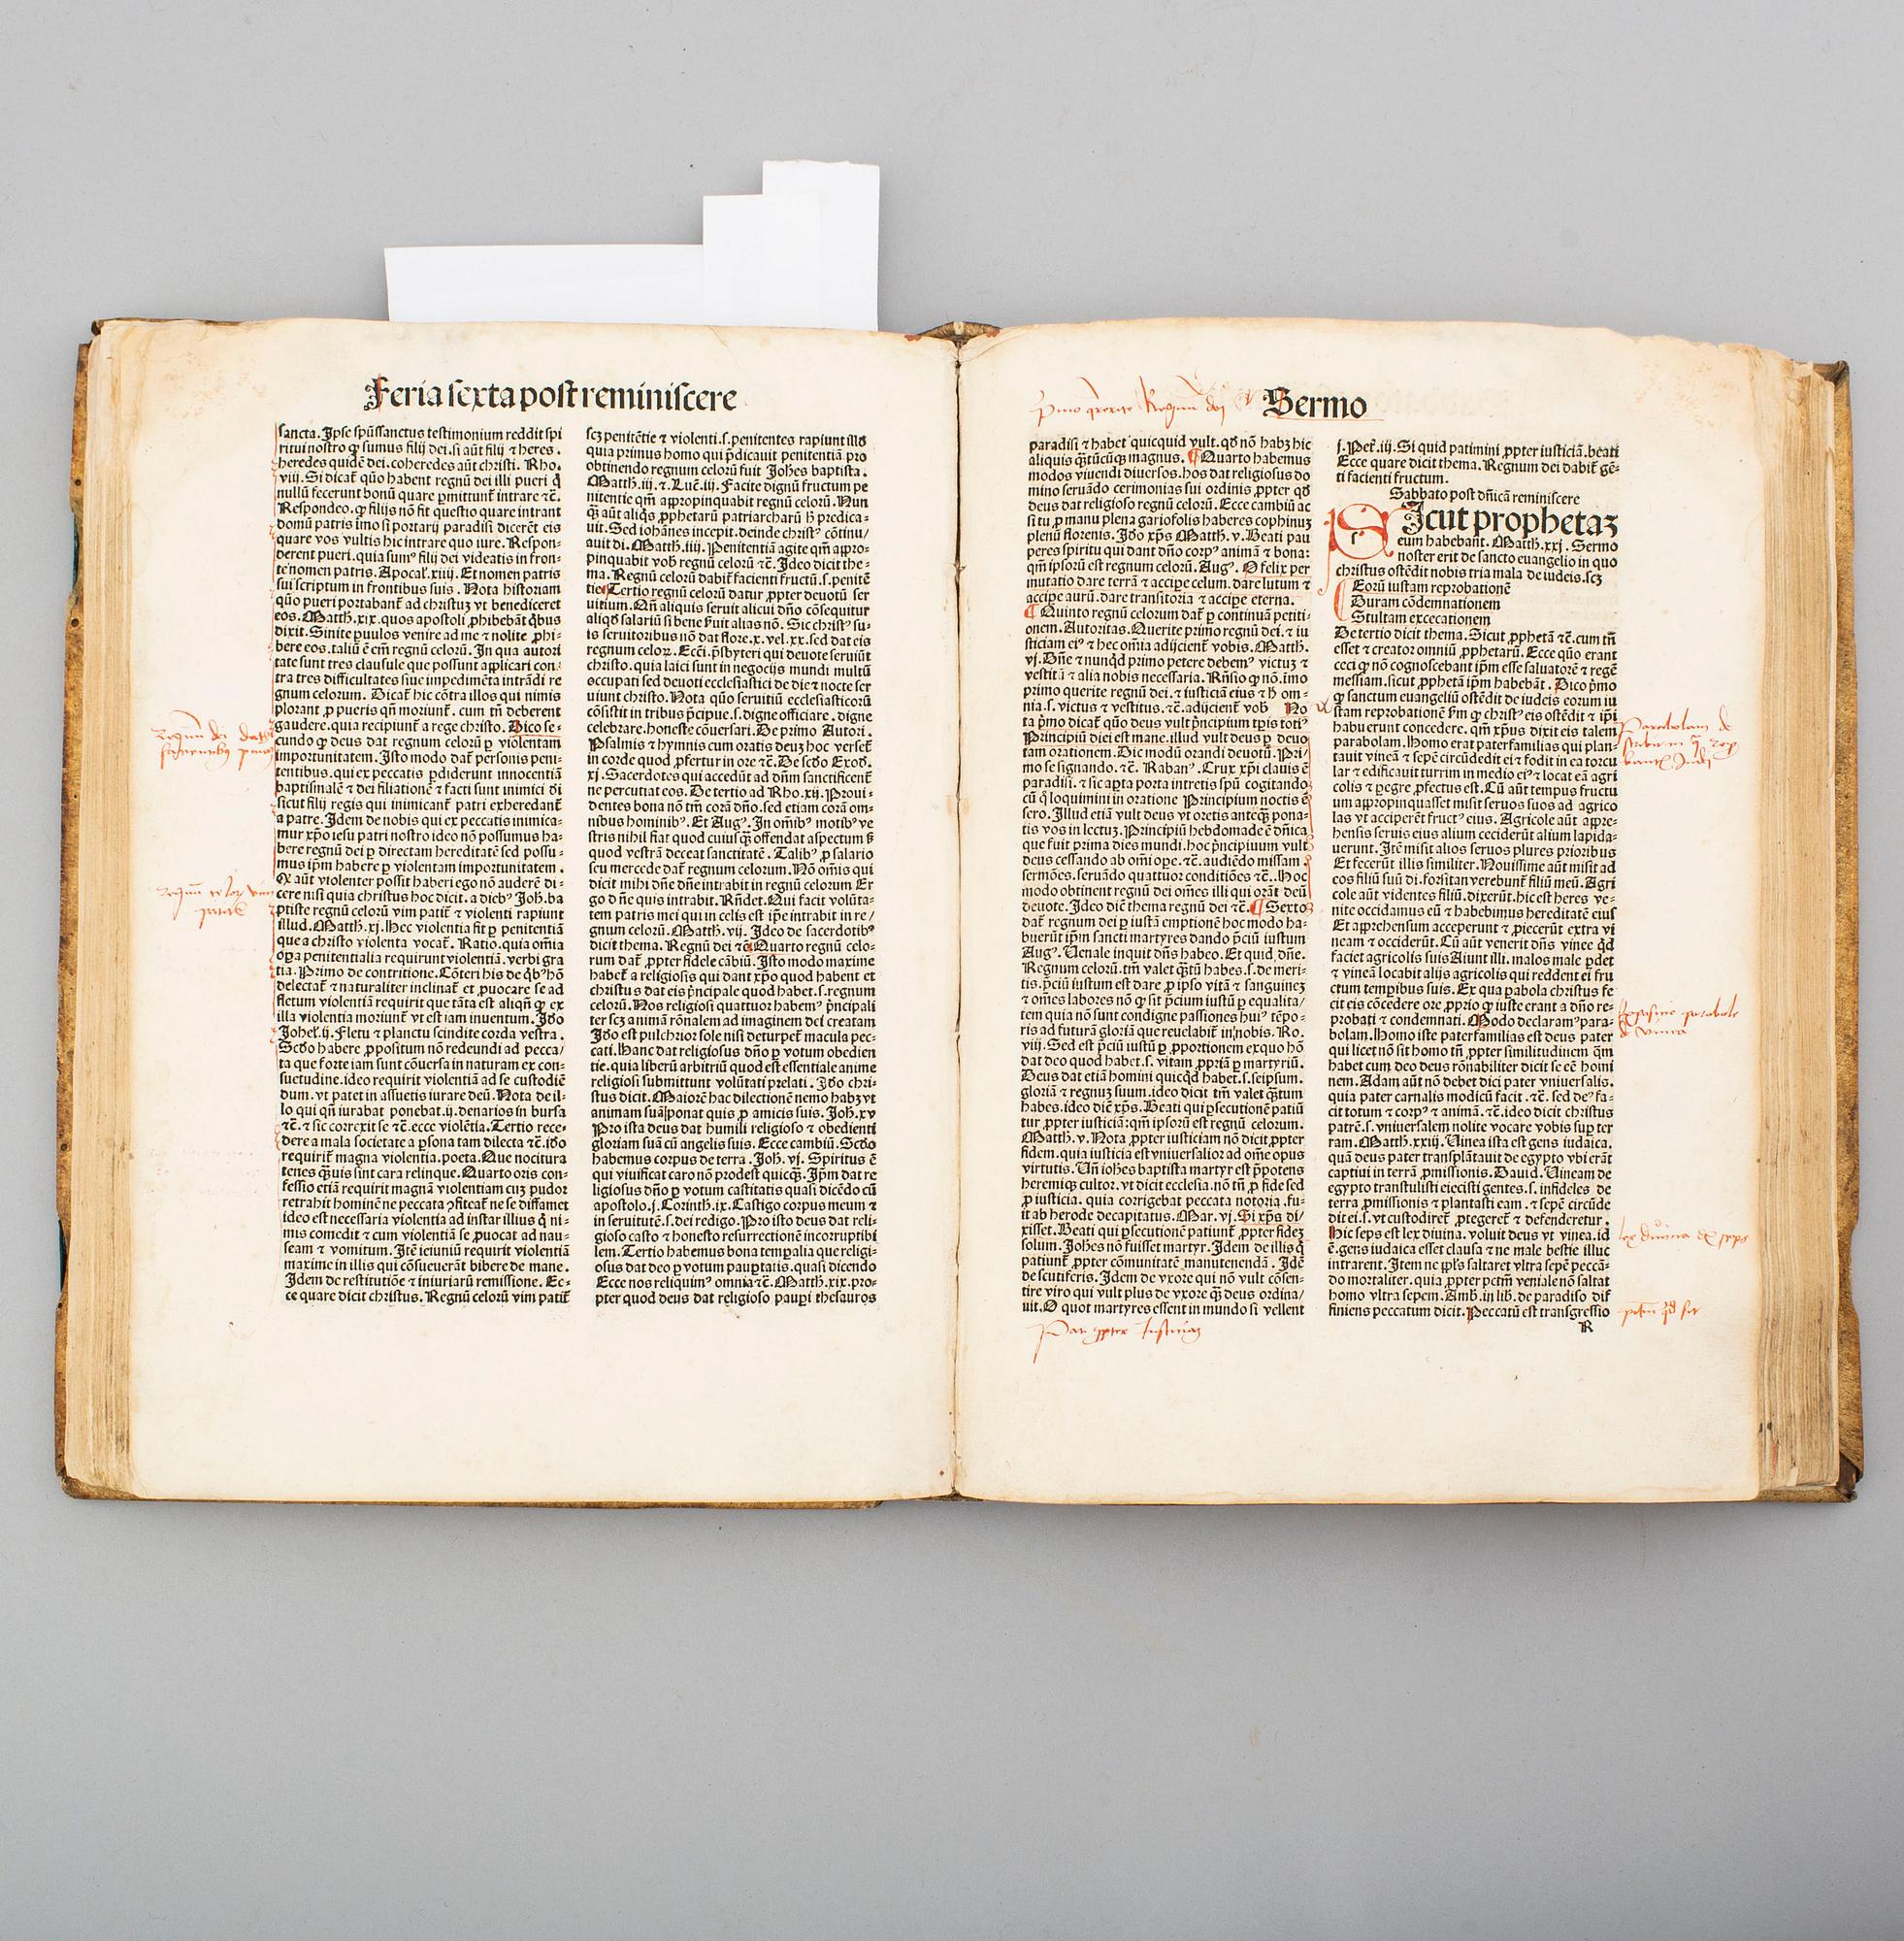 Feria sexta post reminiscere
sancta. Ipse spũssanctus testimonium reddit spi
rituinostro ꝙ sumus filij dei.si aũt filij ⁊ heres.
heredes quidẽ dei.coheredes aũt christi. Rho.
viij. Si dicat̃ quo habent regnũ dei illi pueri q̃
nullũ fecerunt bonũ quare ꝑmittunt̃ intrare ⁊c̃.
Respondeo.ꝙ filijs nõ fit questio quare intrant
domũ patris imo si portarij paradisi dicerẽt eis
quare vos vultis hic intrare quo iure. Respon-
derent pueri.quia sumꝰ filij dei videatis in fron-
te nomen patris. Apocal̃.xiiij. Et nomen patris
sui scriptum in frontibus suis. Nota historiam
quo pueri portabant̃ ad christuꝫ vt benediceret
eos. Matth.xix.quos apostoli ꝓhibebãt q̃bus
dixit. Sinite ꝑuulos venire ad me ⁊ nolite ꝓhi-
bere eos.taliũ ẽ em̃ regnũ celorũ. In qua autori
tate sunt tres clausule que possunt applicari con-
tra tres difficultates siue impedimẽta intrãdi re
gnum celorum. Dicat̃ hic cõtra illos qui nimis
plorant ꝓ pueris qñ moriunt̃. cum tñ deberent
gaudere.quia recipiunt̃ a rege christo. Dico se-
cundo ꝙ deus dat regnum celorũ ꝑ violentam
importunitatem. Isto modo dat̃ personis peni-
tentibus.qui ex peccatis ꝑdiderunt innocentiã
baptismalẽ ⁊ dei filiationẽ ⁊ facti sunt inimici di
sicut filij regis qui inimicant̃ patri exheredant̃
a patre. Idem de nobis qui ex peccatis inimica-
mur xp̃o iesu patri nostro ideo nõ possumus ha-
bere regnũ dei ꝑ directam hereditatẽ sed possu-
mus ip̃m habere ꝑ violentam importunitatem.
Qꝫ aũt violenter possit haberi ego nõ auderẽ di-
cere nisi quia christus hoc dicit. a diebꝰ Joh.ba
ptiste regnũ celorũ vim patit̃ ⁊ violenti rapiunt
illud. Matth.xj.Hec violentia fit ꝑ penitentiã
que a christo violenta vocat̃. Ratio.quia om̃ia
oꝑa penitentialia requirunt violentiã. verbi gra
tia. Primo de contritione. Cõteri his de q̃bꝰ hõ
delectat̃ ⁊ naturaliter inclinat̃ et ꝓuocare se ad
fletum violentiã requirit que tãta est aliqñ ꝙ ex
illa violentia moriunt̃ vt est iam inuentum. Iđo
Johel̃.ij. Fletu ⁊ planctu scindite corda vestra.
Scđo habere ꝓpositum nõ redeundi ad pecca/
ta que forte iam sunt cõuersa in naturam ex con-
suetudine.ideo requirit violentiã ad se custodiẽ
dum. vt patet in assuetis iurare deũ. Nota de il-
lo qui qñ iurabat ponebat.ij.denarios in bursa
⁊c̃. ⁊ sic correxit se ⁊c̃.ecce violẽtia.Tertio rece-
dere a mala societate a ꝑsona tam dilecta ⁊c̃.iđo
requirit̃ magna violentia.poeta. Que nocitura
tenes q̃uis sint cara relinque. Quarto oris con-
fessio etiã requirit magnã violentiam cuꝫ pudor
retrahit hominẽ ne peccata ꝯfiteat̃ ne se diffamet
ideo est necessaria violentia ad instar illius q̃ ni-
mis comedit ⁊ cum violentiã se ꝓuocat ad nau-
seam ⁊ vomitum. Itẽ ieiuniũ requirit violentiã
maxime in illis qui cõsueuerãt bibere de mane.
Idem de restitutiõe ⁊ iniuriarũ remissione. Ec-
ce quare dicit christus. Regnũ celorũ vim patit̃
scꝫ penitẽtie ⁊ violenti.s.penitentes rapiunt illđ
quia primus homo qui p̃dicauit penitentiã pro
obtinendo regnum celorũ fuit Johẽs baptista.
Matth.iij.⁊.Luč.iij. Facite dignũ fructum pe
nitentie qm̃ appropinquabit regnũ celorũ. Nun
q̃ aũt aliq̃s ꝓphetarũ patriarcharũ ħ predica-
uit. Sed iohãnes incepit.deinde christꝰ cõtinu/
auit di. Matth.iiij. Penitentiã agite qm̃ appro-
pinquabit vob̃ regnũ celorũ ⁊c̃. Ideo dicit the-
ma. Regnũ celorũ dabit̃ facienti fructũ.s.penitẽ
tie. Tertio regnũ celorũ datur ꝓpter deuotũ ser
uitium. Qñ aliquis seruit alicui dño cõsequitur
aliqđ salariũ si bene ẽuit alias nõ. Sic christꝰ su-
is seruitoribus nõ dat flore.x.vel.xx.sed dat eis
regnum celoꝝ. Ecẽi.p̃sbyteri qui deuote seruiũt
christo.quia laici sunt in negocijs mundi multũ
occupati sed deuoti ecclesiastici de die ⁊ nocte ser
uiunt christo. Nota quo seruitiũ ecclesiasticorũ
cõsistit in tribus p̃cipue.s.digne officiare. digne
celebrare.honeste cõuersari. De primo Autori.
Psalmis ⁊ hymnis cum oratis deuꝫ hoc verset̃
in corde quod ꝓfertur in ore ⁊c̃. De scđo Exođ.
xj. Sacerdotes qui accedũt ad dñm sanctificent̃
ne percutiat eos. De tertio ad Rho.xij. Proui-
dentes bona nõ tm̃ corã dño.sed etiam corã om-
nibus hominibꝰ. Et Augꝰ. In om̃ibꝰ motibꝰ ve
stris nihil fiat quod cuiusq̃ offendat aspectum ß
quod vestrã deceat sanctitatẽ. Talibꝰ ꝓ salario
seu mercede dat̃ regnum celorum. Nõ om̃is qui
dicit mihi dñe dñe intrabit in regnũ celorum Er
go dñe quis intrabit. Rñdet. Qui facit volũta-
tem patris mei qui in celis est ip̃e intrabit in re/
gnum celorũ. Matth.vij. Ideo de sacerdotibꝰ
dicit thema. Regnũ dei ⁊c̃. Quarto regnũ celo-
rum dat̃ ꝓpter fidele cãbiũ. Isto modo maxime
habet̃ a religiosis qui dant xp̃o quod habent et
christus dat eis p̃ncipale quod habet.s.regnum
celorũ. Nos religiosi quattuor habemꝰ p̃ncipali
ter scꝫ animã rõnalem ad imaginem dei creatam
Iđo est pulchrior sole nisi deturpet̃ macula pec-
cati. Hanc dat religiosus dño ꝑ votum obedien
tie.quia liberũ arbitriũ quod est essentiale anime
religiosi submittunt volũtati prelati. Iđo chri-
stus dicit. Maiorẽ hac dilectionẽ nemo habꝫ vt
animam suã ponat quis ꝓ amicis suis. Joh̃.xv
Pro ista deus dat humili religioso ⁊ obedienti
gloriam suã cũ angelis suis. Ecce cambiũ. Scđo
habemus corpus de terra. Joh̃. vj. Spiritus ẽ
qui viuificat caro nõ prodest quicq̃. Ip̃m dat re
ligiosus dño ꝑ votum castitatis quasi dicẽdo cũ
apostolo.j. Corinth.ix. Castigo corpus meum ⁊
in seruitutẽ.s.dei redigo. Pro isto deus dat reli-
gioso casto ⁊ honesto resurrectionẽ incorruptibi
lem. Tertio habemus bona tempꝰalia que religi-
osus dat deo ꝑ votum pauꝑtatis.quasi dicendo
Ecce nos reliquimꝰ omnia ⁊c̃. Matth.xix.pro-
pter quod deus dat religioso pauꝑi thesauros
Sermo
paradisi ⁊ habet quicquid vult.qđ nõ habꝫ hic
aliquis q̃tũcũqꝫ magnus. Quarto habemus
modos viuendi diuersos.hos dat religiosus do
mino seruãdo cerimonias sui ordinis ꝓpter qđ
deus dat religioso regnũ celorũ. Ecce cambiũ ac
si tu ꝓ manu plena gariofolis haberes cophinuꝫ
plenũ florenis. Iđo xp̃s Matth. v. Beati pau
peres spiritu qui dant dño corpꝰ animã ⁊ bona:
qm̃ ipsorũ est regnum celorũ. Augꝰ. O felix per
mutatio dare terrã ⁊ accipe celum. dare lutum ⁊
accipe aurũ. dare transitoria ⁊ accipe eterna.
Quinto regnũ celorum dat̃ ꝑ continuã petiti-
onem. Autoritas. Querite primo regnũ dei.⁊ iu
sticiam eiꝰ ⁊ hec om̃ia adijcient̃ vobis. Matth.
vj. Dñe ⁊ nunqđ primo petere debemꝰ victuꝫ ⁊
vestitũ ⁊ alia nobis necessaria. Rñsio ꝙ nõ.imo
primo querite regnũ dei.⁊ iusticiã eius ⁊ ħ om-
nia.s. victus ⁊ vestitus.⁊c̃.adijcient̃ vob̃ No
ta p̃mo dicat̃ quo deus vult p̃ncipium tp̃is totiꝰ
Principiũ diei est mane.illud vult deus ꝑ deuo
tam orationem. Dic modũ orandi deuotũ. Pri/
mo se signando.⁊c̃. Rabanꝰ. Crux xp̃i clauis ẽ
paradisi.⁊ sic apta porta intretis spũ cogitando
cũ q̃ loquimini in oratione Principium noctis ẽ
sero. Illud etiã vult deus vt oretis anteq̃ pona-
tis vos in lectuꝫ. Principiũ hebdomade ẽ dñica
que fuit prima dies mundi.hoc p̃ncipium vult
deus cessando ab om̃i oꝑe.⁊c̃.audiẽdo missam.
sermões.seruãdo quattuor conditiões ⁊c̃..Hoc
modo obtinent regnũ dei om̃es illi qui orãt deũ
deuote. Ideo diẽ thema regnũ dei ⁊c̃. Sexto
dat̃ regnum dei ꝑ iustã emptionẽ hoc modo ha-
buerũt ip̃m sancti martyres dando p̃ciũ iustum
Augꝰ. Venale inquit dñs habeo. Et quid dñe.
Regnum celorũ.tm̃ valet q̃tũ habes.s.de meri-
tis.p̃ciũ iustum est dare ꝓ ipso vitã ⁊ sanguineꝫ
⁊ om̃es labores nõ ꝙ sit p̃cium iustũ ꝑ equalita/
tem quia nõ sunt condigne passiones huiꝰ tẽpo-
ris ad futurã gloriã que reuelabit̃ in nobis. Ro.
viij. Sed est p̃ciũ iustũ ꝑ ꝓportionem exquo hõ
dat deo quod habet.s. vitam ꝓpriã ꝑ martyriũ.
Deus dat etiã homini quicqđ habet.s.seipsum.
gloriã ⁊ regnuꝫ suum.ideo dicit tm̃ valet q̃tum
habes.ideo diẽ xp̃s. Beati qui ꝑsecutionẽ patiũ
tur ꝓpter iusticiã:qm̃ ipsorũ est regnũ celorum.
Matth. v. Nota ꝓpter iusticiam nõ dicit ꝓpter
fidem.quia iusticia est vniuersalior ad om̃e opus
virtutis. Vñ iohẽs baptista martyr est p̃potens
heremiqꝫ cultor.vt dicit ecclesia.nõ tm̃ ꝓ fide sed
ꝓ iusticia. quia corrigebat peccata notoria .fu-
it ab herode decapitatus. Mar. vj. Si xp̃s di/
xisset. Beati qui ꝑsecutionẽ patiunt̃ ꝓpter fideꝫ
solum. Johẽs nõ fuisset martyr. Idem de illis q̃
patiunt̃ ꝓpter cõmunitatẽ manutenendã. Idẽ
de scutiferis. Idem de vxore qui nõ vult cõsen-
tire viro qui vult plus de vxore q̃ deus ordina/
uit.O quot martyres essent in mundo si vellent
j. Pet̃.iij. Si quid patimini ꝓpter iusticiã.beati
Ecce quare dicit thema. Regnum dei dabit̃ gẽ-
ti facienti fructum.
Sabbato post dñicã reminiscere
SIcut prophetaꝫ
eum habebant̃. Matth.xxj. Sermo
noster erit de sancto euangelio in quo
christus ostẽdit nobis tria mala de iudeis.scꝫ
Eorũ iustam reprobationẽ
Duram cõdemnationem
Stultam excecationem
De tertio dicit thema. Sicut ꝓphetã ⁊c̃.cum tñ
esset ⁊ creator omniũ ꝓphetarũ. Ecce quo erant
ceci ꝙ nõ cognoscebant ip̃m esse saluatorẽ ⁊ regẽ
messiam.sicut ꝓphetã ip̃m habebãt. Dico p̃mo
ꝙ sanctum euangeliũ ostẽdit de iudeis eorum iu
stam reprobationẽ ẽm ꝙ christꝰ eis ostẽdit ⁊ ip̃i
habuerunt concedere. qm̃ xp̃us dixit eis talem
parabolam. Homo erat paterfamilias qui plan-
tauit vineã ⁊ sepẽ circũdedit ei ⁊ fodit in ea torcu
lar ⁊ edificauit turrim in medio eiꝰ ⁊ locat eã agri
colis ⁊ ꝑegre ꝓfectus est. Cũ aũt tempus fructu
um appropinquasset misit seruos suos ad agrico
las vt acciperẽt fructꝰ eius. Agricole aũt appre-
hensis seruis eius alium ceciderũt alium lapida-
uerunt. Itẽ misit alios seruos plures prioribus
Et fecerũt illis similiter. Nouissime aũt misit ad
eos filiũ suũ di.forsitan verebunt̃ filiũ meũ. Agri
cole aũt videntes filiũ.dixerũt.hic est heres ve-
nite occidamus eũ ⁊ habebimus hereditatẽ eius
Et apprehensum acceperunt ⁊ ꝓiecerũt extra vi
neam ⁊ occiderũt. Cũ aũt venerit dñs vinee qđ
faciet agricolis suis Aiunt illi. malos male ꝑdet
⁊ vineã locabit alijs agricolis qui reddent ei fru
ctum tempibus suis. Ex qua ꝑabola christus fe
cit eis cõcedere ore ꝓprio ꝙ iuste erant a dño re-
probati ⁊ condemnati. Modo declaramꝰ para-
bolam. Homo iste paterfamilias est deus pater
qui licet nõ sit homo tñ ꝓpter similitudinem q̃m
habet cum deo deus rõnabiliter dicit se eẽ homi
nem. Adam aũt nõ debet dici pater vniuersalis.
quia pater carnalis modicũ facit .⁊c̃. sed deꝰ fa-
cit totum ⁊ corpꝰ ⁊ animã .⁊c̃.ideo dicit christus
patrẽ.s. vniuersalem nolite vocare vobis suꝑ ter
ram. Matth.xxiij. Vinea ista est gens iudaica.
quã deus pater transplãtauit de egypto vbi erãt
captiui in terrã ꝓmissionis. Dauid. Vineam de
egypto transtulisti eiecisti gentes.s. infideles de
terra ꝓmissionis ⁊ plantasti eam .⁊ sepẽ circũde
dit ei.s.vt custodiret̃ ꝓtegeret̃ ⁊ defenderetur.
Hic seps est lex diuina. voluit deus vt vinea.id
ẽ.gens iudaica esset clausa ⁊ ne male bestie illuc
intrarent. Item ne ip̃s̃a saltaret vltra sepẽ peccã-
do mortaliter.quia ꝓpter pctm̃ veniale nõ saltat
homo vltra sepem. Amb.in lib. de paradiso dif̃
finiens peccatum dicit. Peccatũ est transgressio
R